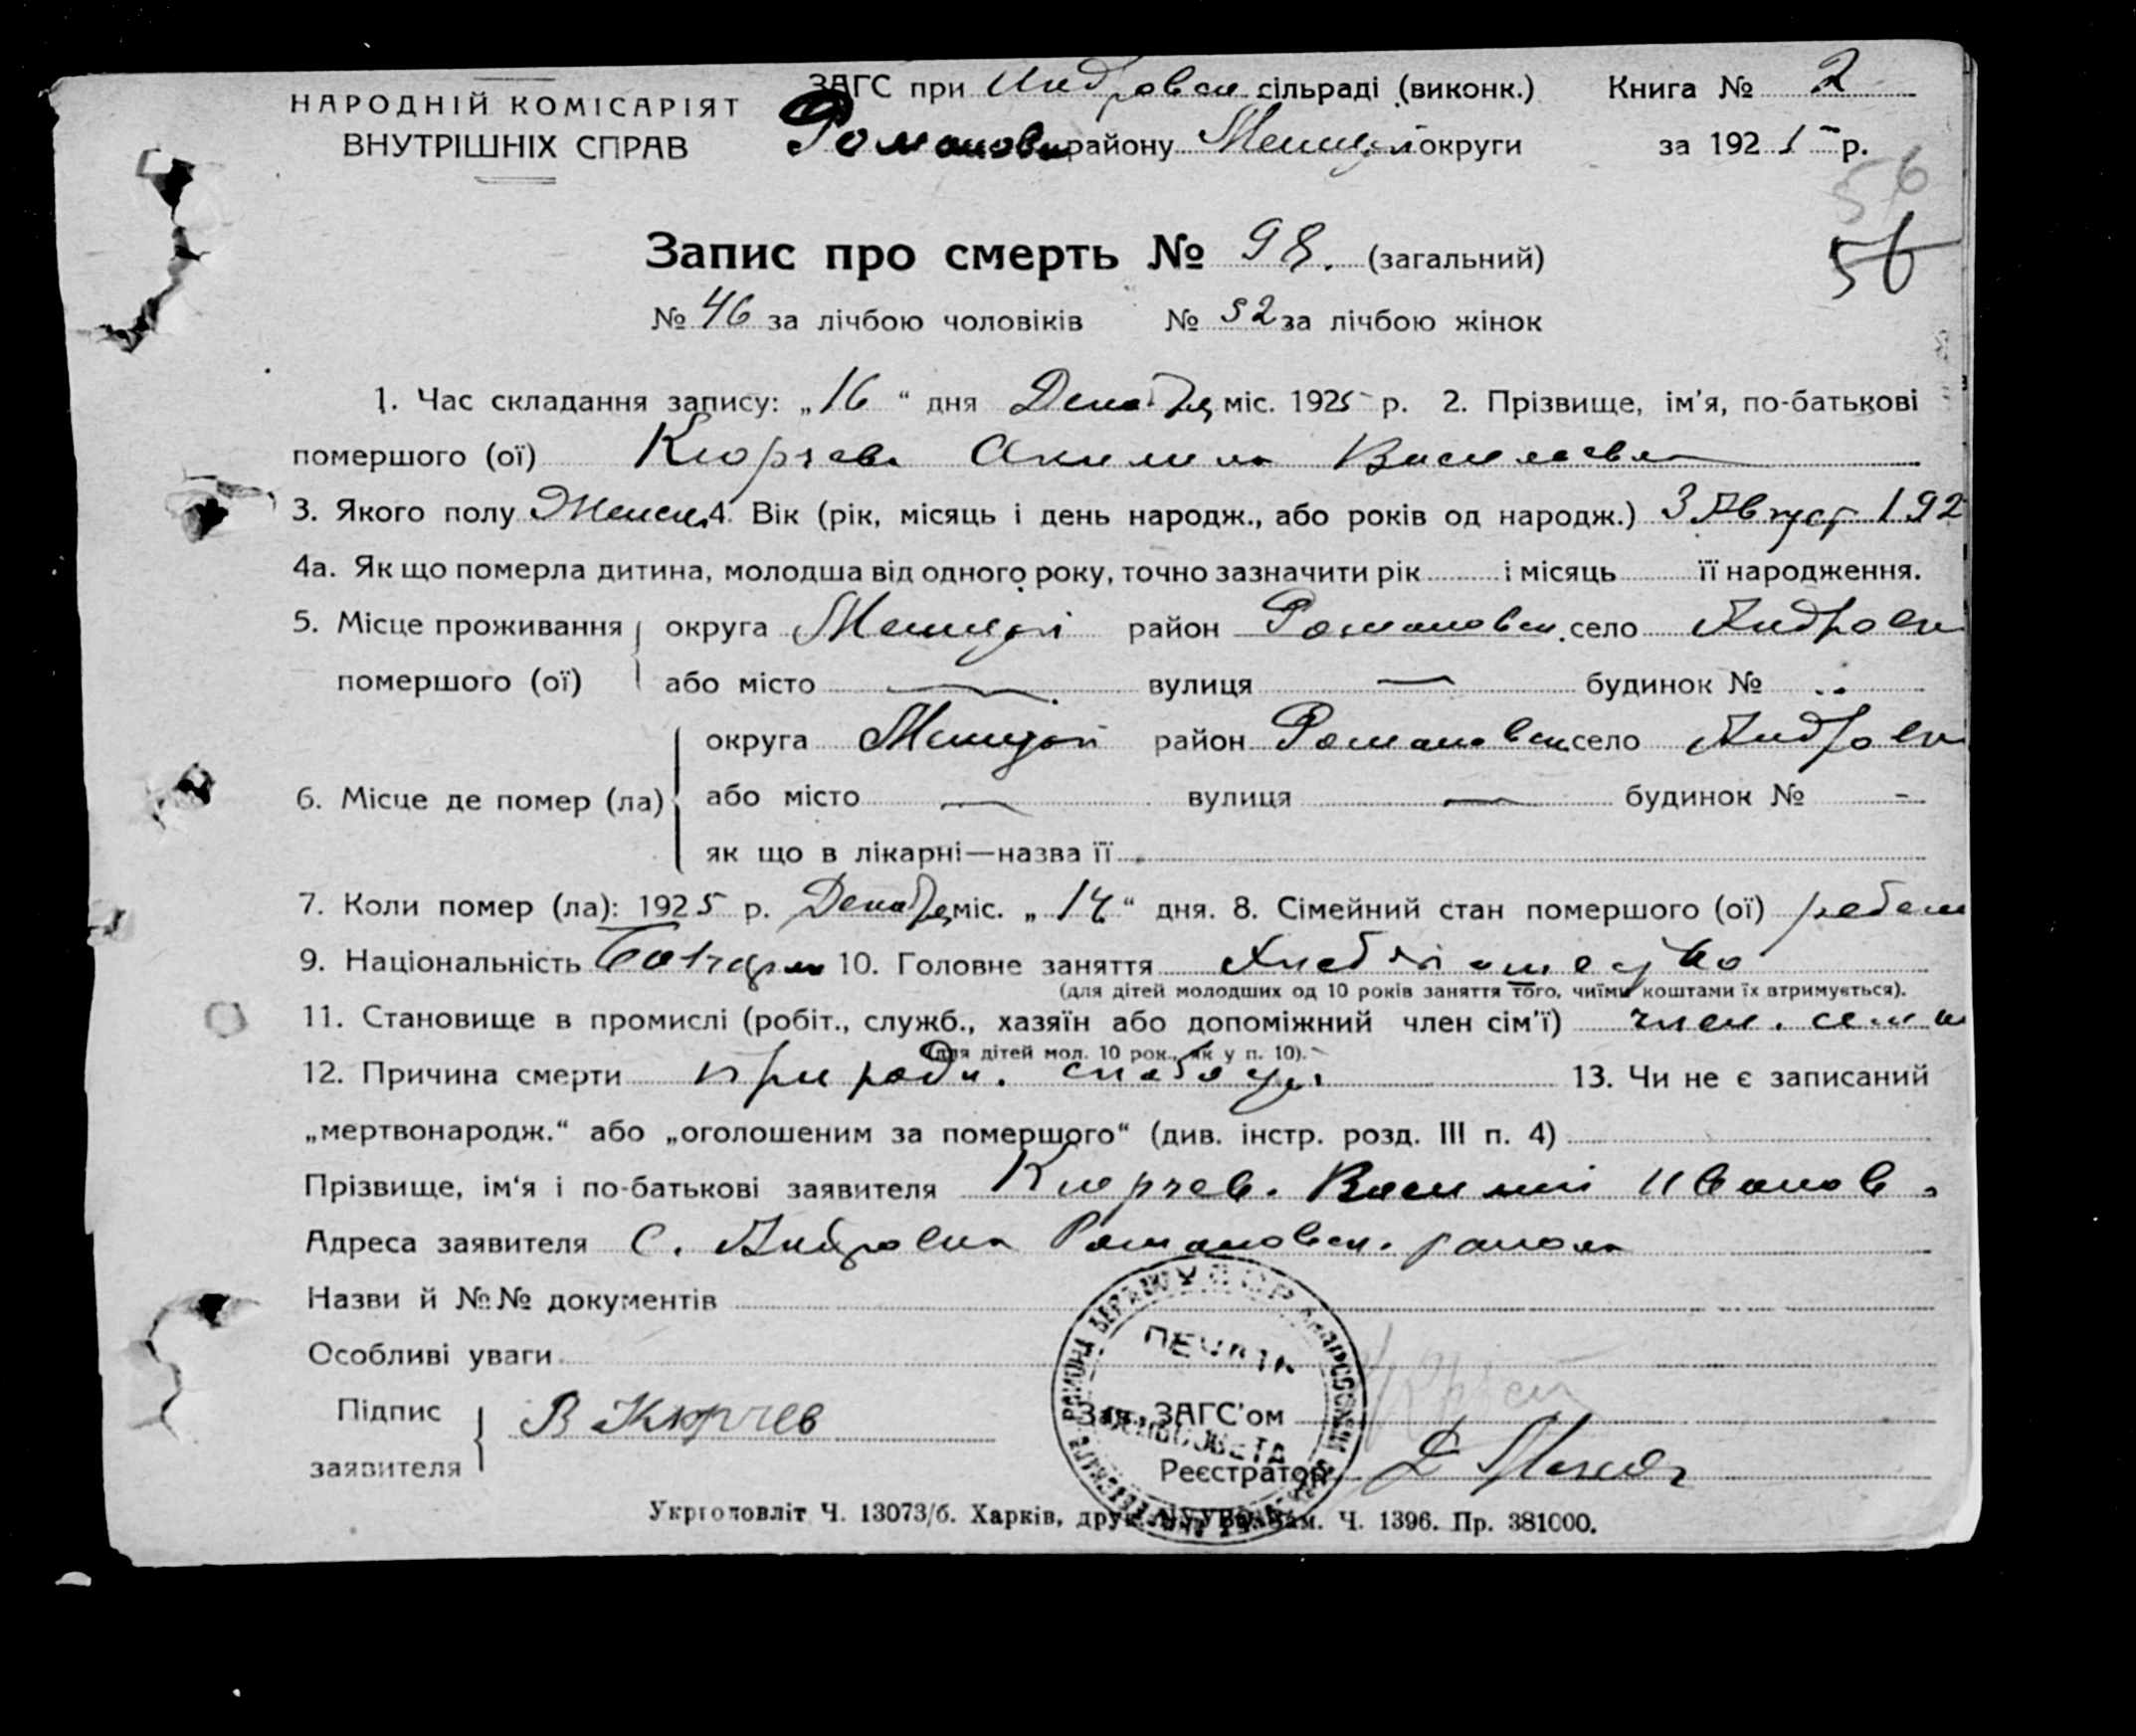 НАРОДНІЙ КОМІСАРІЯТ
ВНУТРІШНІХ СПРАВ
ЗАГС при Андровск сільраді (виконк.) Книга № 2
Романовск району Мелитоп округи за 1925 р.
56
56
Запис про смерть № 98. (загальний)
№ 46 за лічбою чоловіків № 52 за лічбою жінок
1. Час складання запису: „16“ дня Декабр міс. 1925 р. 2. Прізвище, ім'я, по-батькові
помершого (ої) Кюрчева Акилина Василевна
3. Якого полу Женск. 4. Вік (рік, місяць і день народж., або років од народж.) 3 Август 192
4а. Як що померла дитина, молодша від одного року, точно зазначити рік і місяць її народження.
5. Місце проживання помершого (ої) округа Мелитоп район Романовск. село Андровк
або місто — вулиця — будинок №
6. Місце де помер (ла) округа Мелитоп район Романовск село Андровк
або місто — вулиця — будинок № -
як що в лікарні—назва її
7. Коли помер (ла): 1925 р. Декабр міс. „14“ дня. 8. Сімейний стан помершого (ої) ребен
9. Національність Болгарк 10. Головне заняття Хлебопашество
(для дітей молодших од 10 років заняття того, чиїми коштами їх втримується).
11. Становище в промислі (робіт., служб., хазяїн або допоміжний член сім'ї) член. семи
(для дітей мол. 10 рок., як у п. 10).
12. Причина смерти природн. слабост 13. Чи не є записаний
„мертвонародж.“ або „оголошеним за помершого“ (див. інстр. розд. III п. 4)
Прізвище, ім'я і по-батькові заявителя Кюрчев. Василий Иванов.
Адреса заявителя С. Андровка Романовск. района
Назви й №№ документів
Особливі уваги
Підпис заявителя В Кюрчев
ПЕЧАТЬ
СЕЛЬСОВЕТА
Зав. ЗАГС'ом
Реєстратор
Укрголовліт Ч. 13073/б. Харків, друк. УУВО. Зам. Ч. 1396. Пр. 381000.